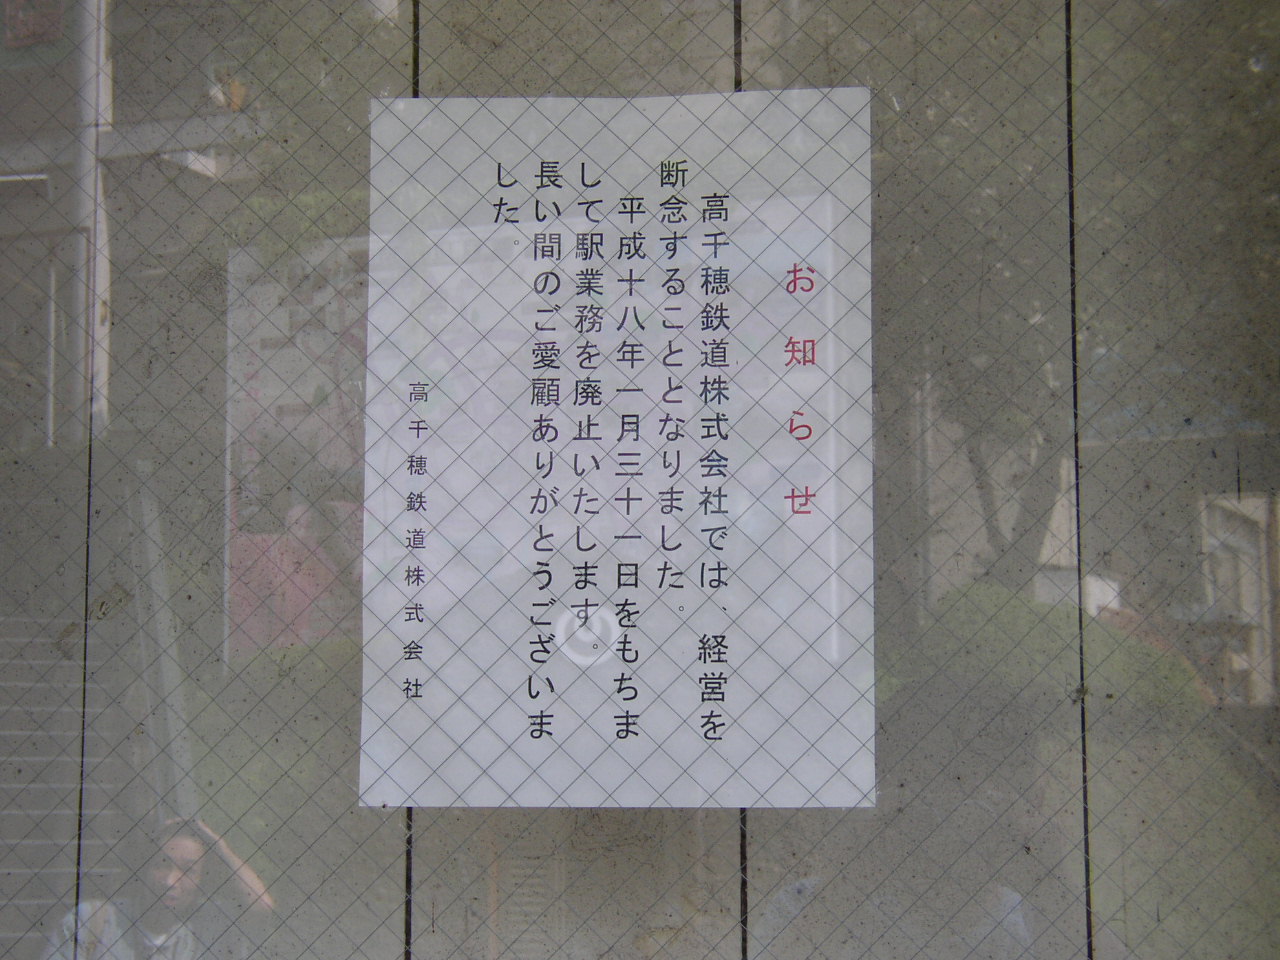 お知らせ
高千穂鉄道株式会社では、経営を
断念することとなりました。
平成十八年一月三十一日をもちま
して駅業務を廃止いたします。
長い間のご愛顧ありがとうございま
した。
高千穂鉄道株式会社